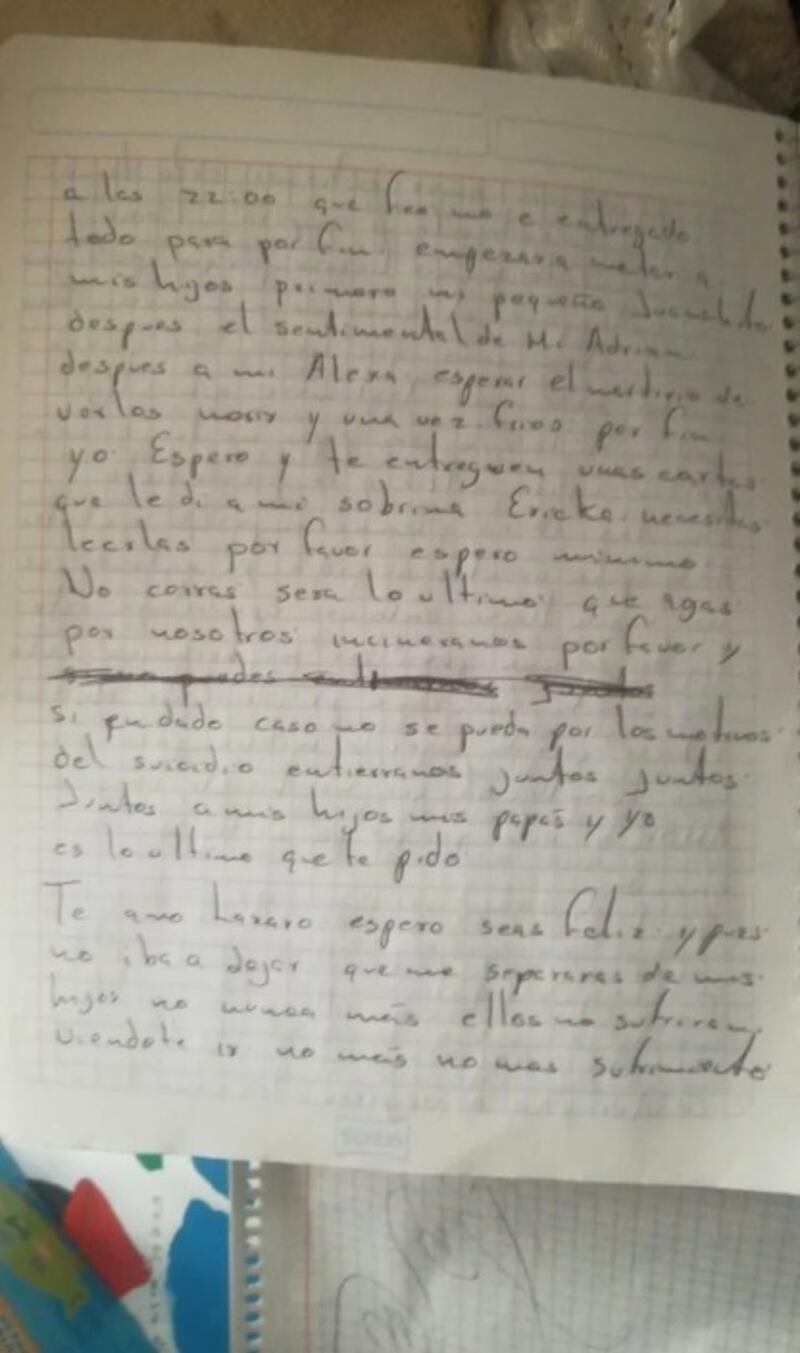 a las 22:00 que no e entregado
todo para por fin empezar a matar a
mis hijos primero mi pequeño
despues el sentimental de Mi Adrian
despues a mi Alexa esperar el martirio de
verlos morir y una vez frios por fin
yo Espero y te entreguen unas cartas
que le di a mi sobrina Ericka necesitas
leerlas por favor espero minimo
No corras sera lo ultimo que agas
por nosotros incineranos por favor y
si en dado caso no se pueda por los motivos
del suicidio entierranos juntos juntos
Juntos a mis hijos mis papás y yo
es lo ultimo que te pido
Te amo Lazaro espero seas feliz y pues
no iba a dejar que me separaras de mis
hijos no nunca más ellos no sufriran
viendote ir no más no mas sufrimiento